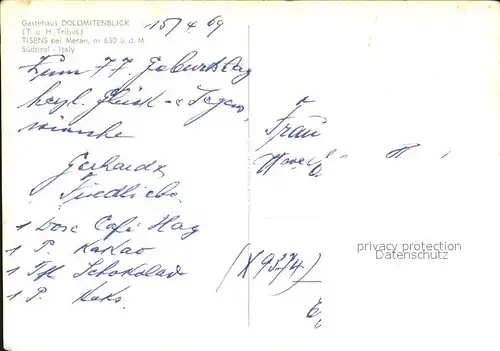 Gästehaus DOLOMITENBLICK
(T. u. H. Tribus)
TISENS bei Meran, m 630 ü. d. M
Südtirol - Italy
15/4 69
Zum 77. Geburtstag
herzl. Glück- u Segens
wünsche
Gerhardt
1 Dose Café Hag
1 P. Kakao
1 Tfl Schokolade
1 P. Keks.
Frau
(X 9374)
privacy protection
Datenschutz